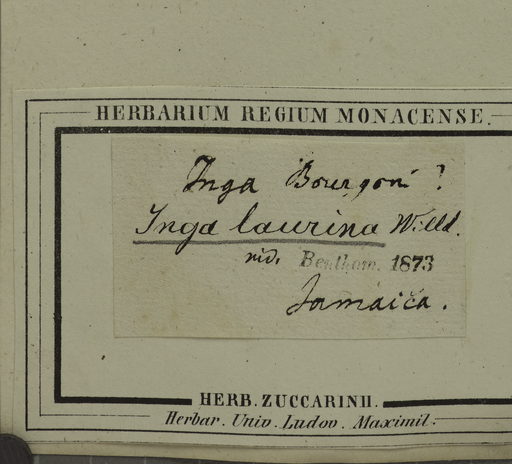 HERBARIUM REGIUM MONACENSE.
Inga Bourgoni ?
Inga laurina Willd.
vid. Bentham. 1873
Jamaica.
HERB. ZUCCARINII.
Herbar. Univ. Ludov. Maximil.